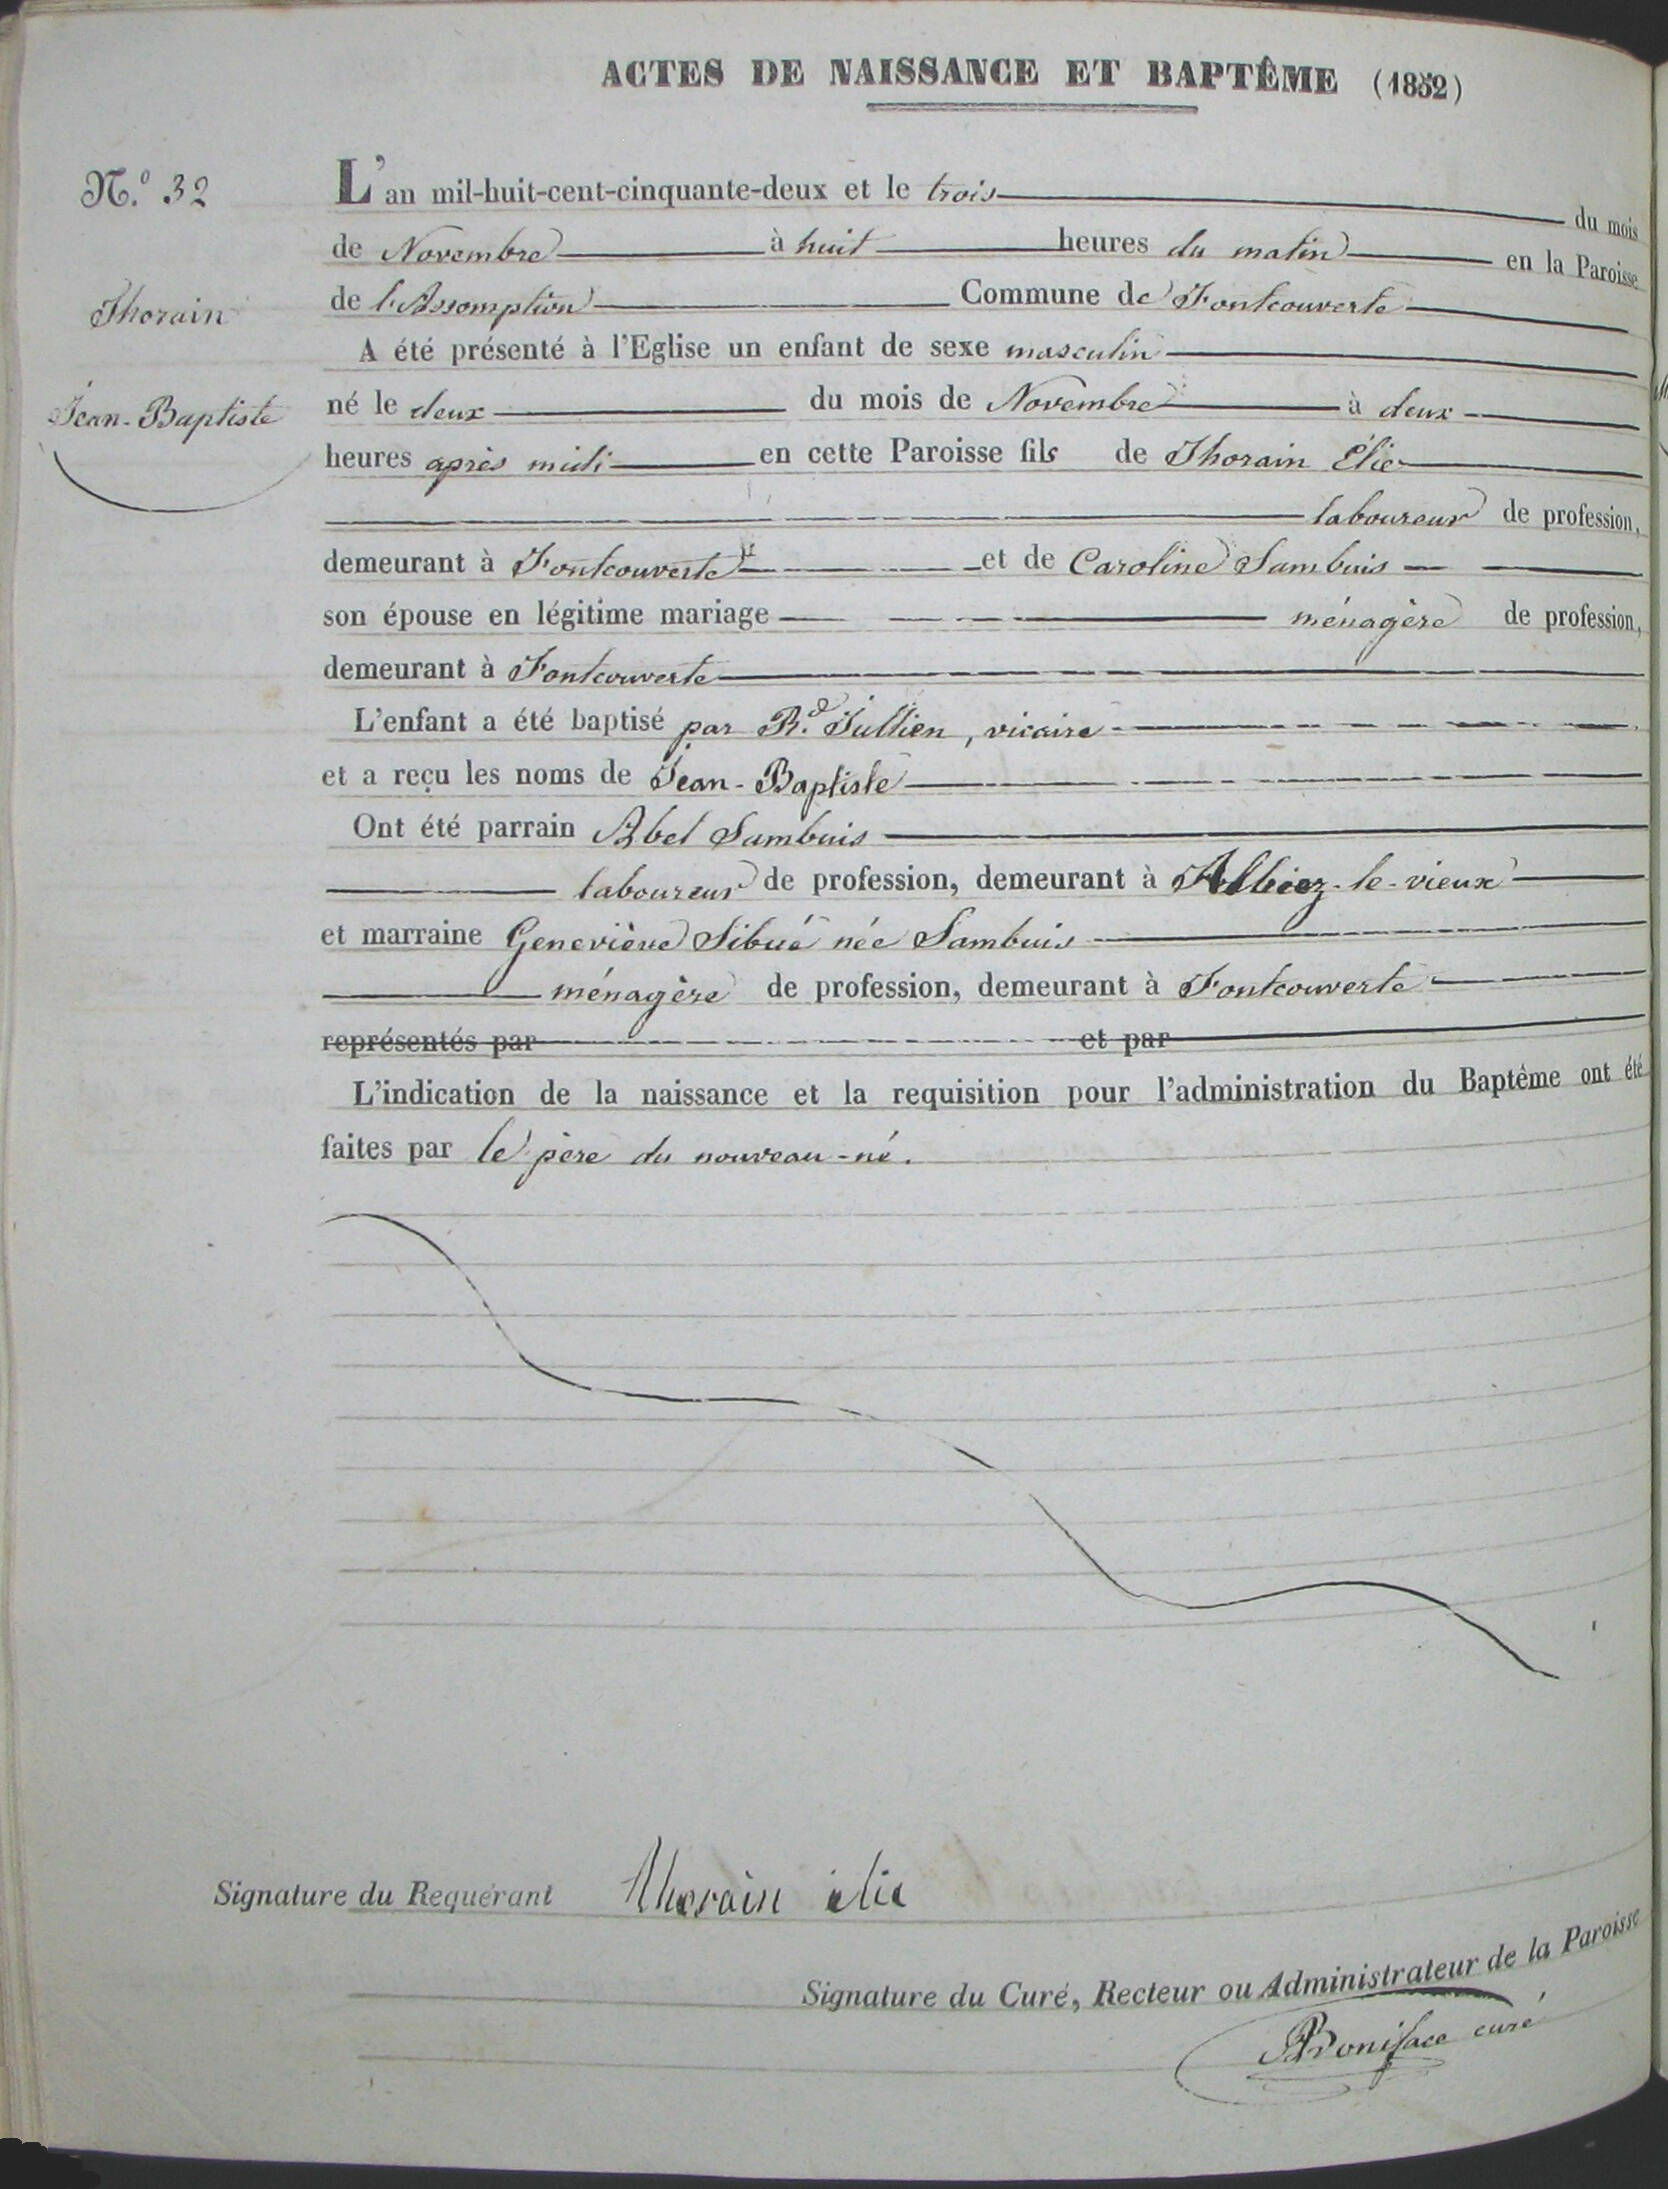 ACTES DE NAISSANCE ET BAPTÊME (1852)
N.º 32
L'an mil-huit-cent-cinquante-deux et le trois du mois
de Novembre à huit heures du matin en la Paroisse
Thorain
de l'Assomption Commune de Fontcouverte
A été présenté à l'Eglise un enfant de sexe masculin
Jean-Baptiste
né le deux du mois de Novembre à deux
heures après midi en cette Paroisse fils de Thorain Élie
laboureur de profession,
demeurant à Fontcouverte et de Caroline Sambuis
son épouse en légitime mariage ménagère de profession,
demeurant à Fontcouverte
L'enfant a été baptisé par R.d Jullien, vicaire
et a reçu les noms de Jean-Baptiste
Ont été parrain Abel Sambuis
laboureur de profession, demeurant à Albiez-le-vieux
et marraine Geneviève Sibué née Sambuis
ménagère de profession, demeurant à Fontcouverte
représentés par et par
L'indication de la naissance et la requisition pour l'administration du Baptême ont été
faites par le père du nouveau-né.
Signature du Requérant Thorain élie
Signature du Curé, Recteur ou Administrateur de la Paroisse
Boniface curé